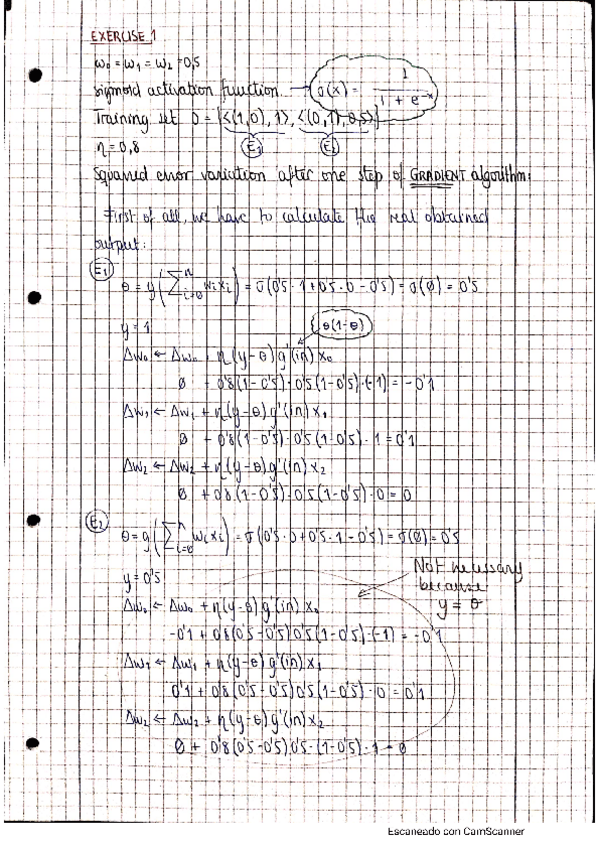 EXERCISE 1
w₀ = w₁ = w₂ = 0,5
sigmoid activation function → σ(x) = 1 / (1 + e⁻ˣ)
Training set D = {<(1,0), 1>, <(0,1), 0,5>}
E₁ E₂
η = 0,8
Squared error variation after one step of GRADIENT algorithm:
First of all, we have to calculate the real obtained
output:
E₁
θ = g(∑ⁿᵢ₌₀ wᵢxᵢ) = σ(0'5 · 1 + 0'5 · 0 - 0'5) = σ(0) = 0'5
y = 1
θ(1-θ)
Δw₀ ← Δw₀ + η(y-θ) g'(in) x₀
0 + 0'8(1-0'5) · 0'5(1-0'5) · (-1) = -0'1
Δw₁ ← Δw₁ + η(y-θ) g'(in) x₁
0 + 0'8(1-0'5) · 0'5(1-0'5) · 1 = 0'1
Δw₂ ← Δw₂ + η(y-θ) g'(in) x₂
0 + 0'8(1-0'5) · 0'5(1-0'5) · 0 = 0
E₂
θ = g(∑ⁿᵢ₌₀ wᵢxᵢ) = σ(0'5 · 0 + 0'5 · 1 - 0'5) = σ(0) = 0'5
y = 0'5
Not necessary
because
y = θ
Δw₀ ← Δw₀ + η(y-θ) g'(in) x₀
-0'1 + 0'8(0'5-0'5) 0'5(1-0'5) · (-1) = -0'1
Δw₁ ← Δw₁ + η(y-θ) g'(in) x₁
0'1 + 0'8(0'5-0'5) 0'5(1-0'5) · 0 = 0'1
Δw₂ ← Δw₂ + η(y-θ) g'(in) x₂
0 + 0'8(0'5-0'5) 0'5 · (1-0'5) · 1 = 0
Escaneado con CamScanner